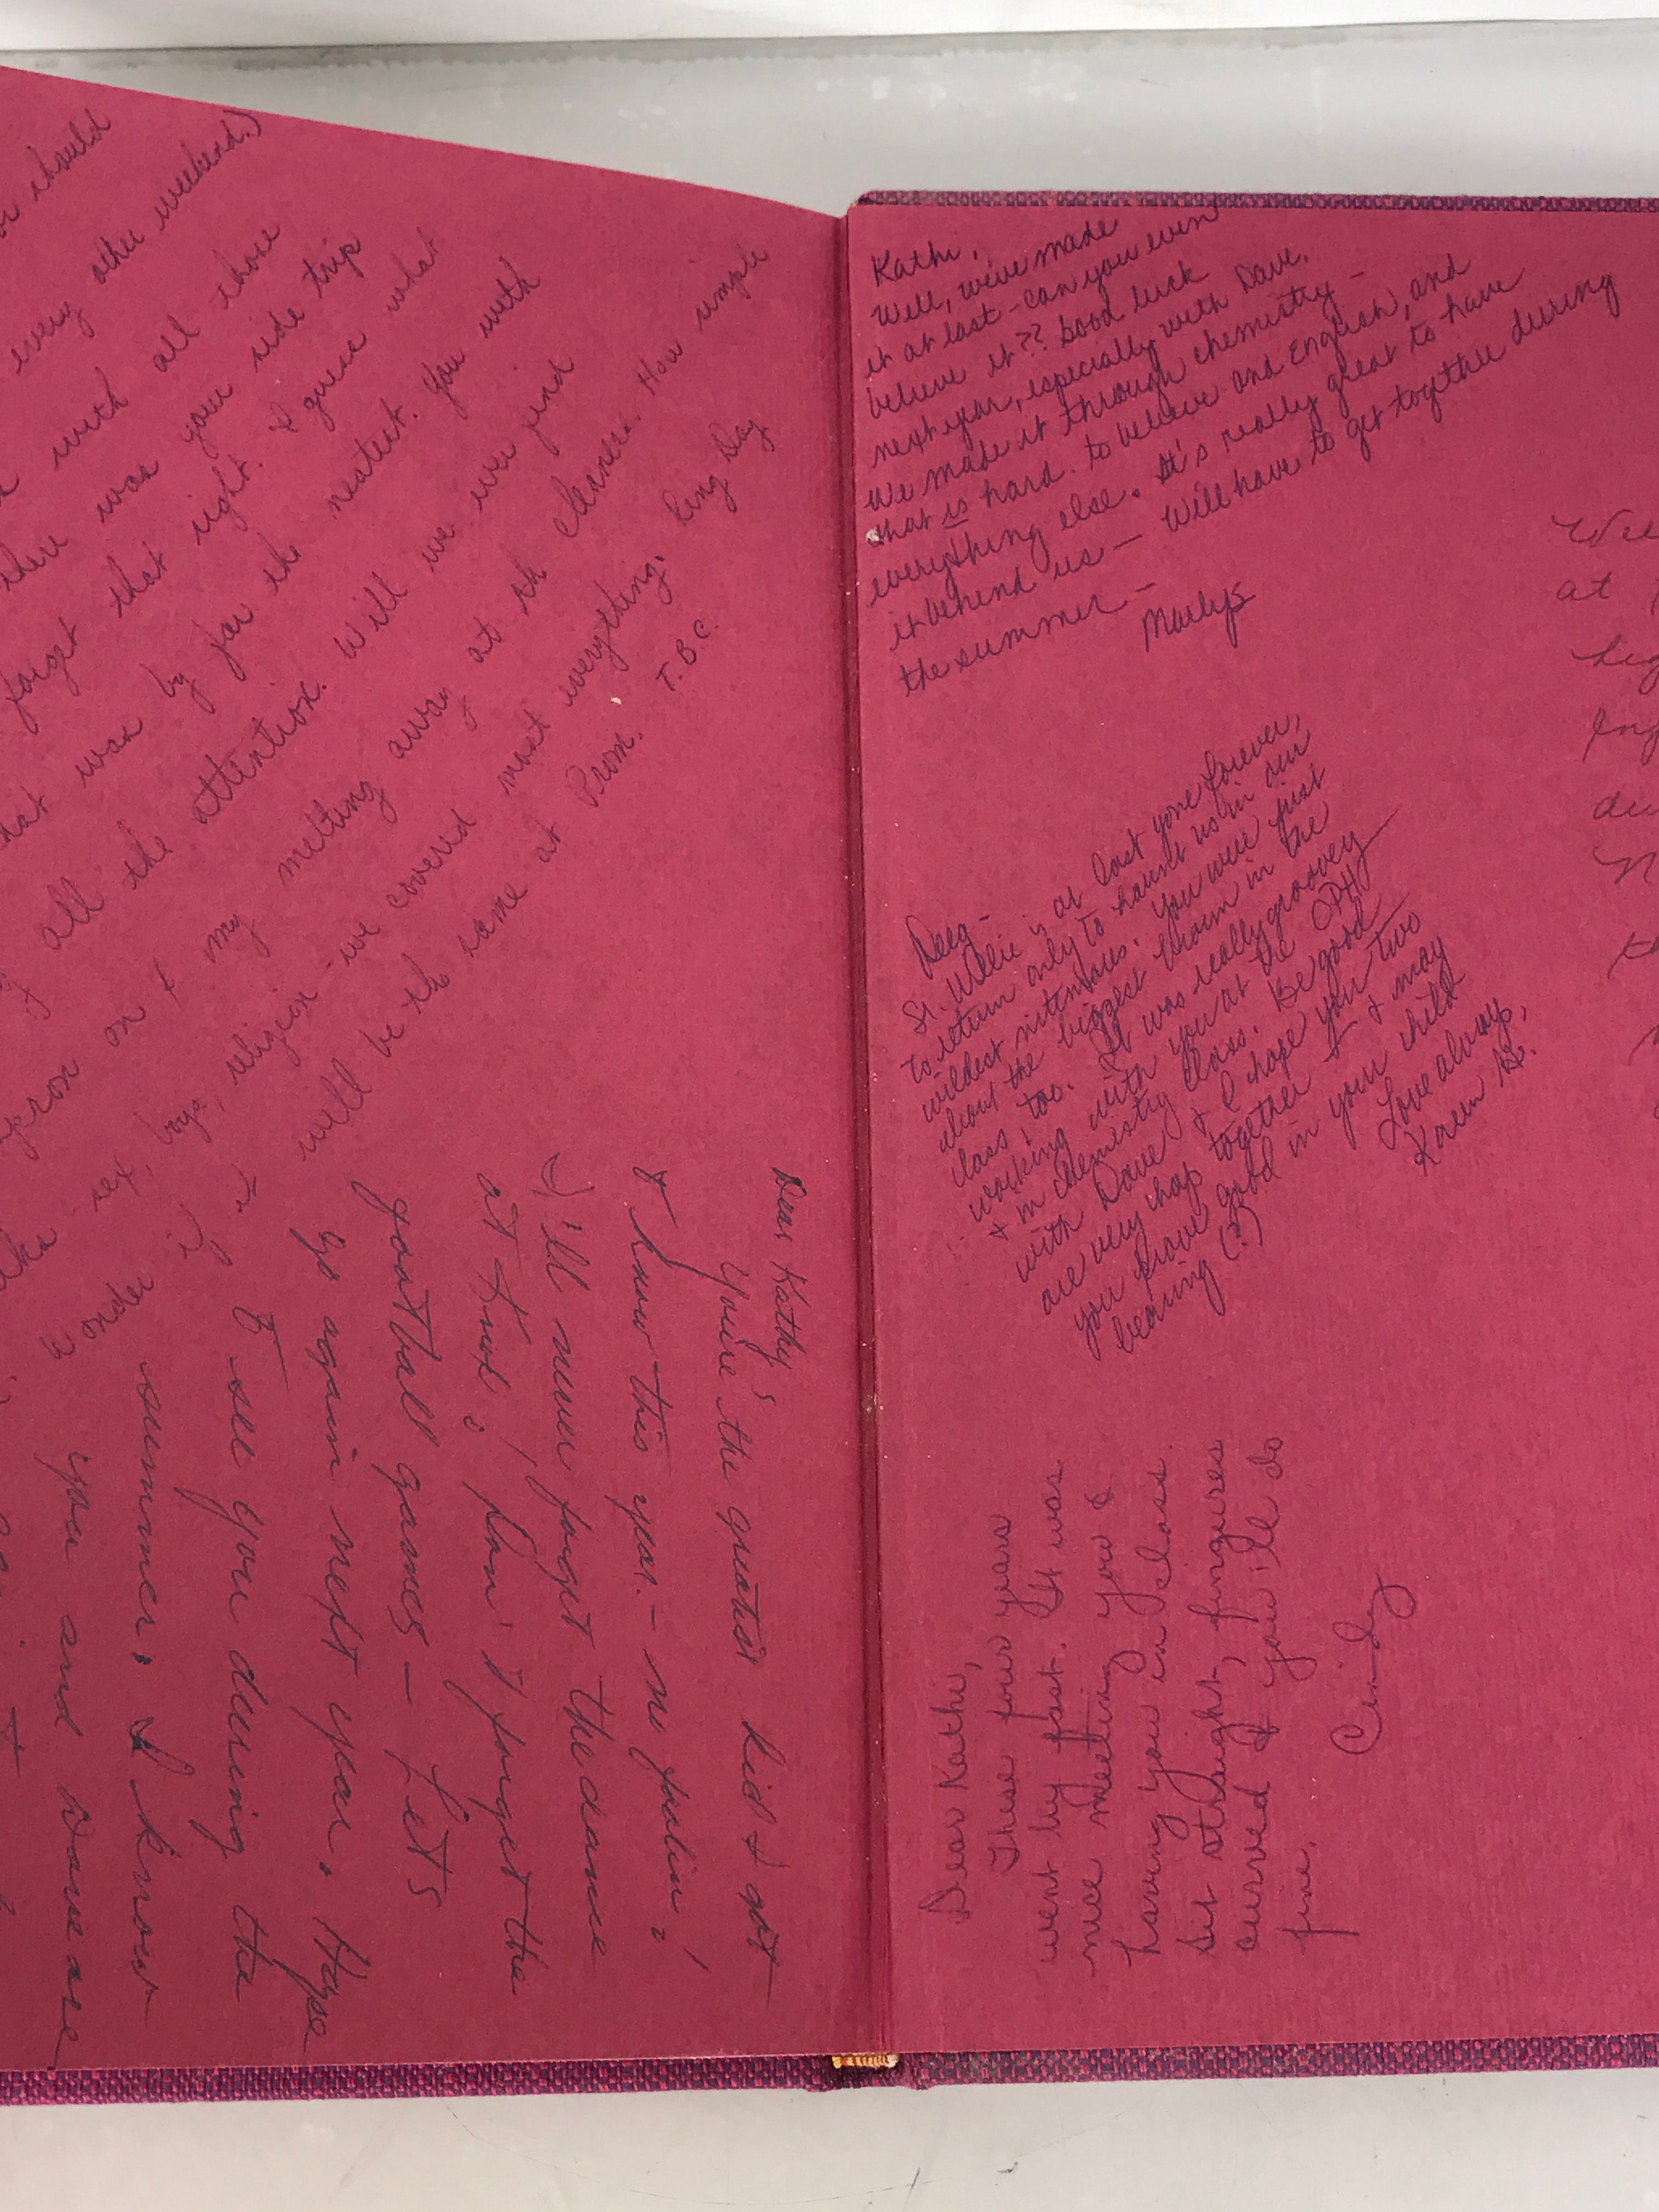 or should
every other weekend.)
with all those
there was your side trip
forget that night. I guess what
that was by far the neatest. You with
all the attention. Will we ever find
apron on & my melting away at the cleaners. How simple
sex, boys, religion - we covered most everything. King Day
will be the same at Prom. T.B.C.
Dear Kathy,
You're the greatest kid I got
to know this year. - no foolin!
I'll never forget the dance
at find, don't forget the
football games - Let's
go again next year. Hope
to see you during the
summer. I know
you and Dave are
Kathi,
Well, we've made
it at last - can you even
believe it?? Good luck
next year, especially with Dave.
We made it through chemistry -
that is hard to believe and English, and
everything else. It's really great to have
it behind us - Will have to get together during
the summer -
Marlys
Deeg -
St. Willie is at last gone forever,
to return only to haunt us in our
wildest nitemares. You were just
about the biggest brain in the
class, too. It was really groovey
working with you at the
& in chemistry class. Be good
with Dave & I hope you two
are very hap together & may
you prove good in your child
bearing (?)
Love always,
Karen H.
Dear Kathi,
These four years
went by fast. It was
nice meeting you &
having you in class.
Sit straight, fingures
curved & you'll do
fine.
Cindy
at